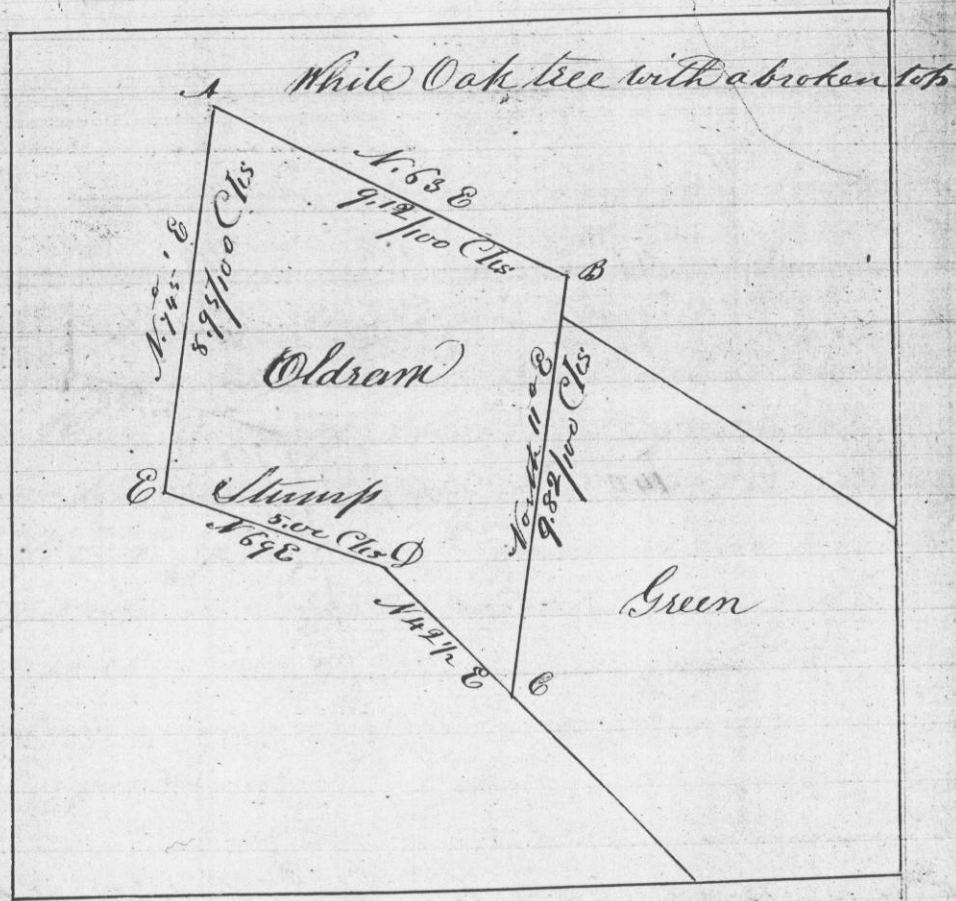 A White Oak tree with a broken top
N. 63 E
9.12/100 Chs
B
N. 7° 45' E
8.95/100 Chs
Oldream
North 11° E
9.82/100 Chs
E Stump
5.00 Chs D
N 69 E
N 49 1/2 E
C
Green